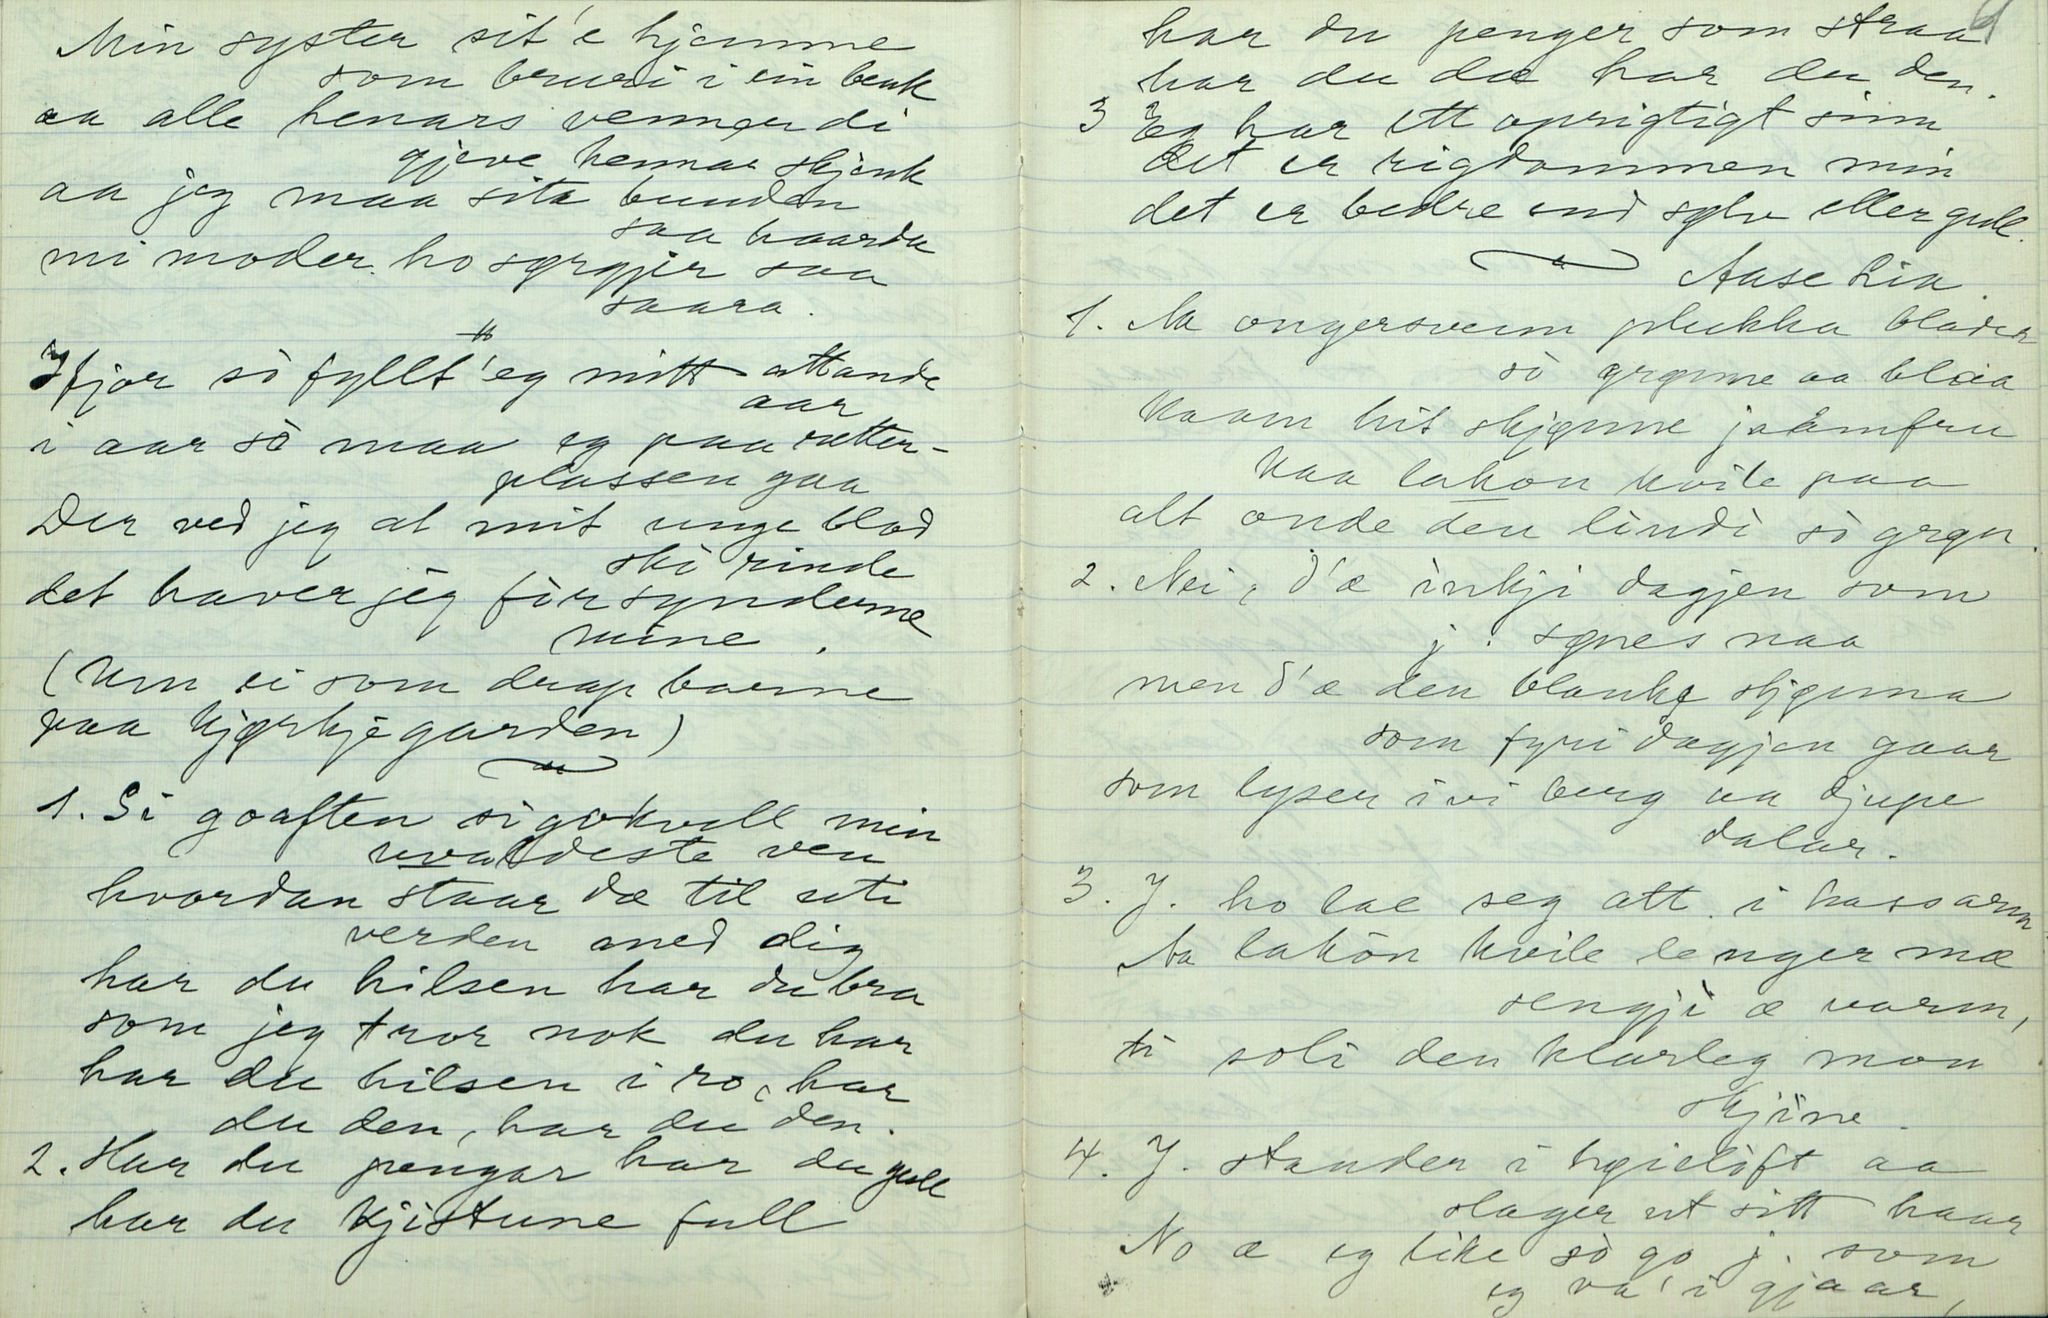 Min syster sit'e hjemme
som bruri i ein benk
aa alle henars venner di
gjeve hennar skjenk
aa jeg maa sita bunden
saa haarda
mi moder ho sørgjer saa
saara.
I fjor så fyllt' eg mitt attande
aar
i aar så maa eg paa retter-
plassen gaa
Der ved jeg at mit unge blod
ski rinde
det haver jeg før synderne
mine.
(Um ei som drap barne
paa kjørkjegarden)
1. Si goaften si gokvell min
uvaldeste ven
hvordan staar dæ til uti
verden med dig
har du hilsen har du bra
som jeg tror nok du har
har du hilsen i ro, har
du den, har du den.
2. Har du pengar har du gull
har du kjistune full
har du penger som straa
har du dæ har du den.
3 Eg har ett oprigtigt sinn
det er rigdommen min
det er bedre end sølv eller gull.
Aase Lia.
1. Aa ongersveinn plukka blader
så grønne aa blaa
Kaam hit skjønne jaamfru
kaa lakon kvile paa
alt onde den lindi så grøn.
2. Nei, d'æ inkji dagjen som
j. synes naa
men d'æ den blanke stjønna
som fyri dagjen gaar
som lyser ivi berg aa djupe
dalar.
3. J. ho lae seg att i hass arm
Aa lakon kvile lenger mæ
sengji æ varm,
ti soli den klarleg mon
skjine.
4. J. stander i høieloft aa
slager ut sitt haar
No æ eg like så go j. som
eg va' i gjaar,